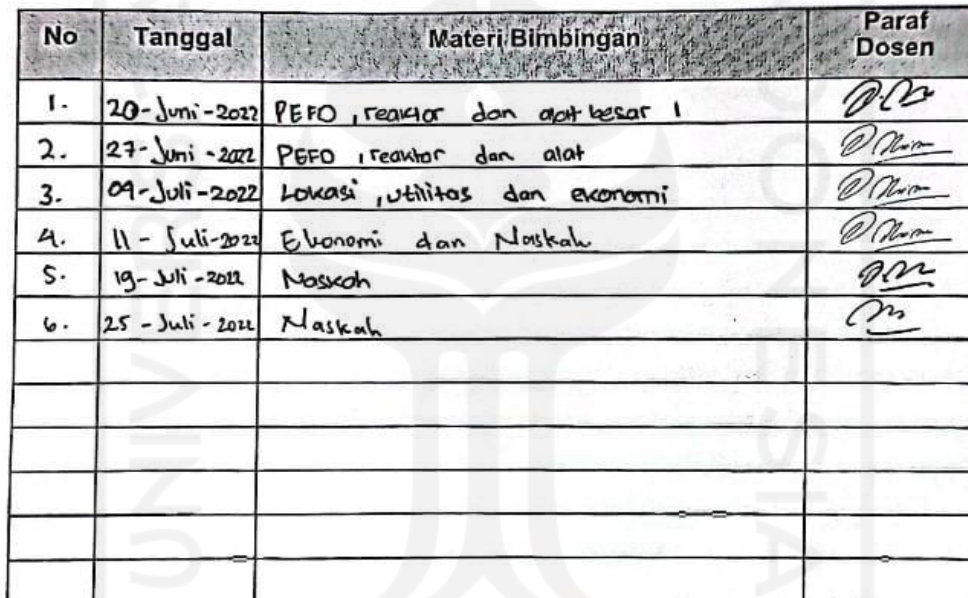 No Tanggal Materi Bimbingan Paraf Dosen
1. 20-Juni-2022 PEFD, reaktor dan alat besar 1
2. 27-Juni-2022 PEFD, reaktor dan alat
3. 09-Juli-2022 Lokasi, utilitas dan ekonomi
4. 11-Juli-2022 Ekonomi dan Naskah
5. 19-Juli-2022 Naskah
6. 25-Juli-2022 Naskah